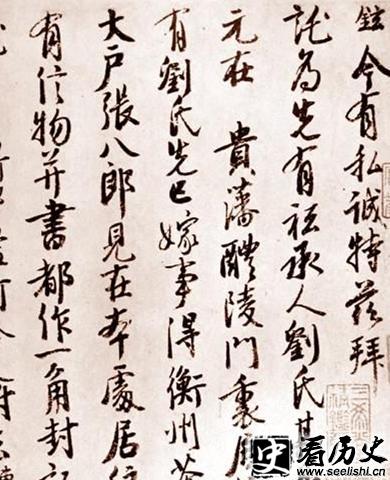 鉉今有私誠特茲拜
託為先有祗承人劉氏其
元在 貴藩醴陵門裏居
有劉氏先已嫁事得衡州茶
大戶張八郎見在本處居住
有信物并書都作一角封記
史 看历史
www.seelishi.cn